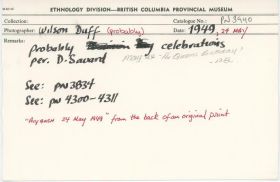 ETHNOLOGY DIVISION—BRITISH COLUMBIA PROVINCIAL MUSEUM
Collection: Catalogue No.: PN 3940
Photographer: Wilson Duff (probably) Date: 1949, 24 MAY
Remarks:
probably celebrations
per. D. Savard may be the Queen's birthday?
See: PN 3834
See: PN 4300-4311
24 May 1949" from the back of an original print